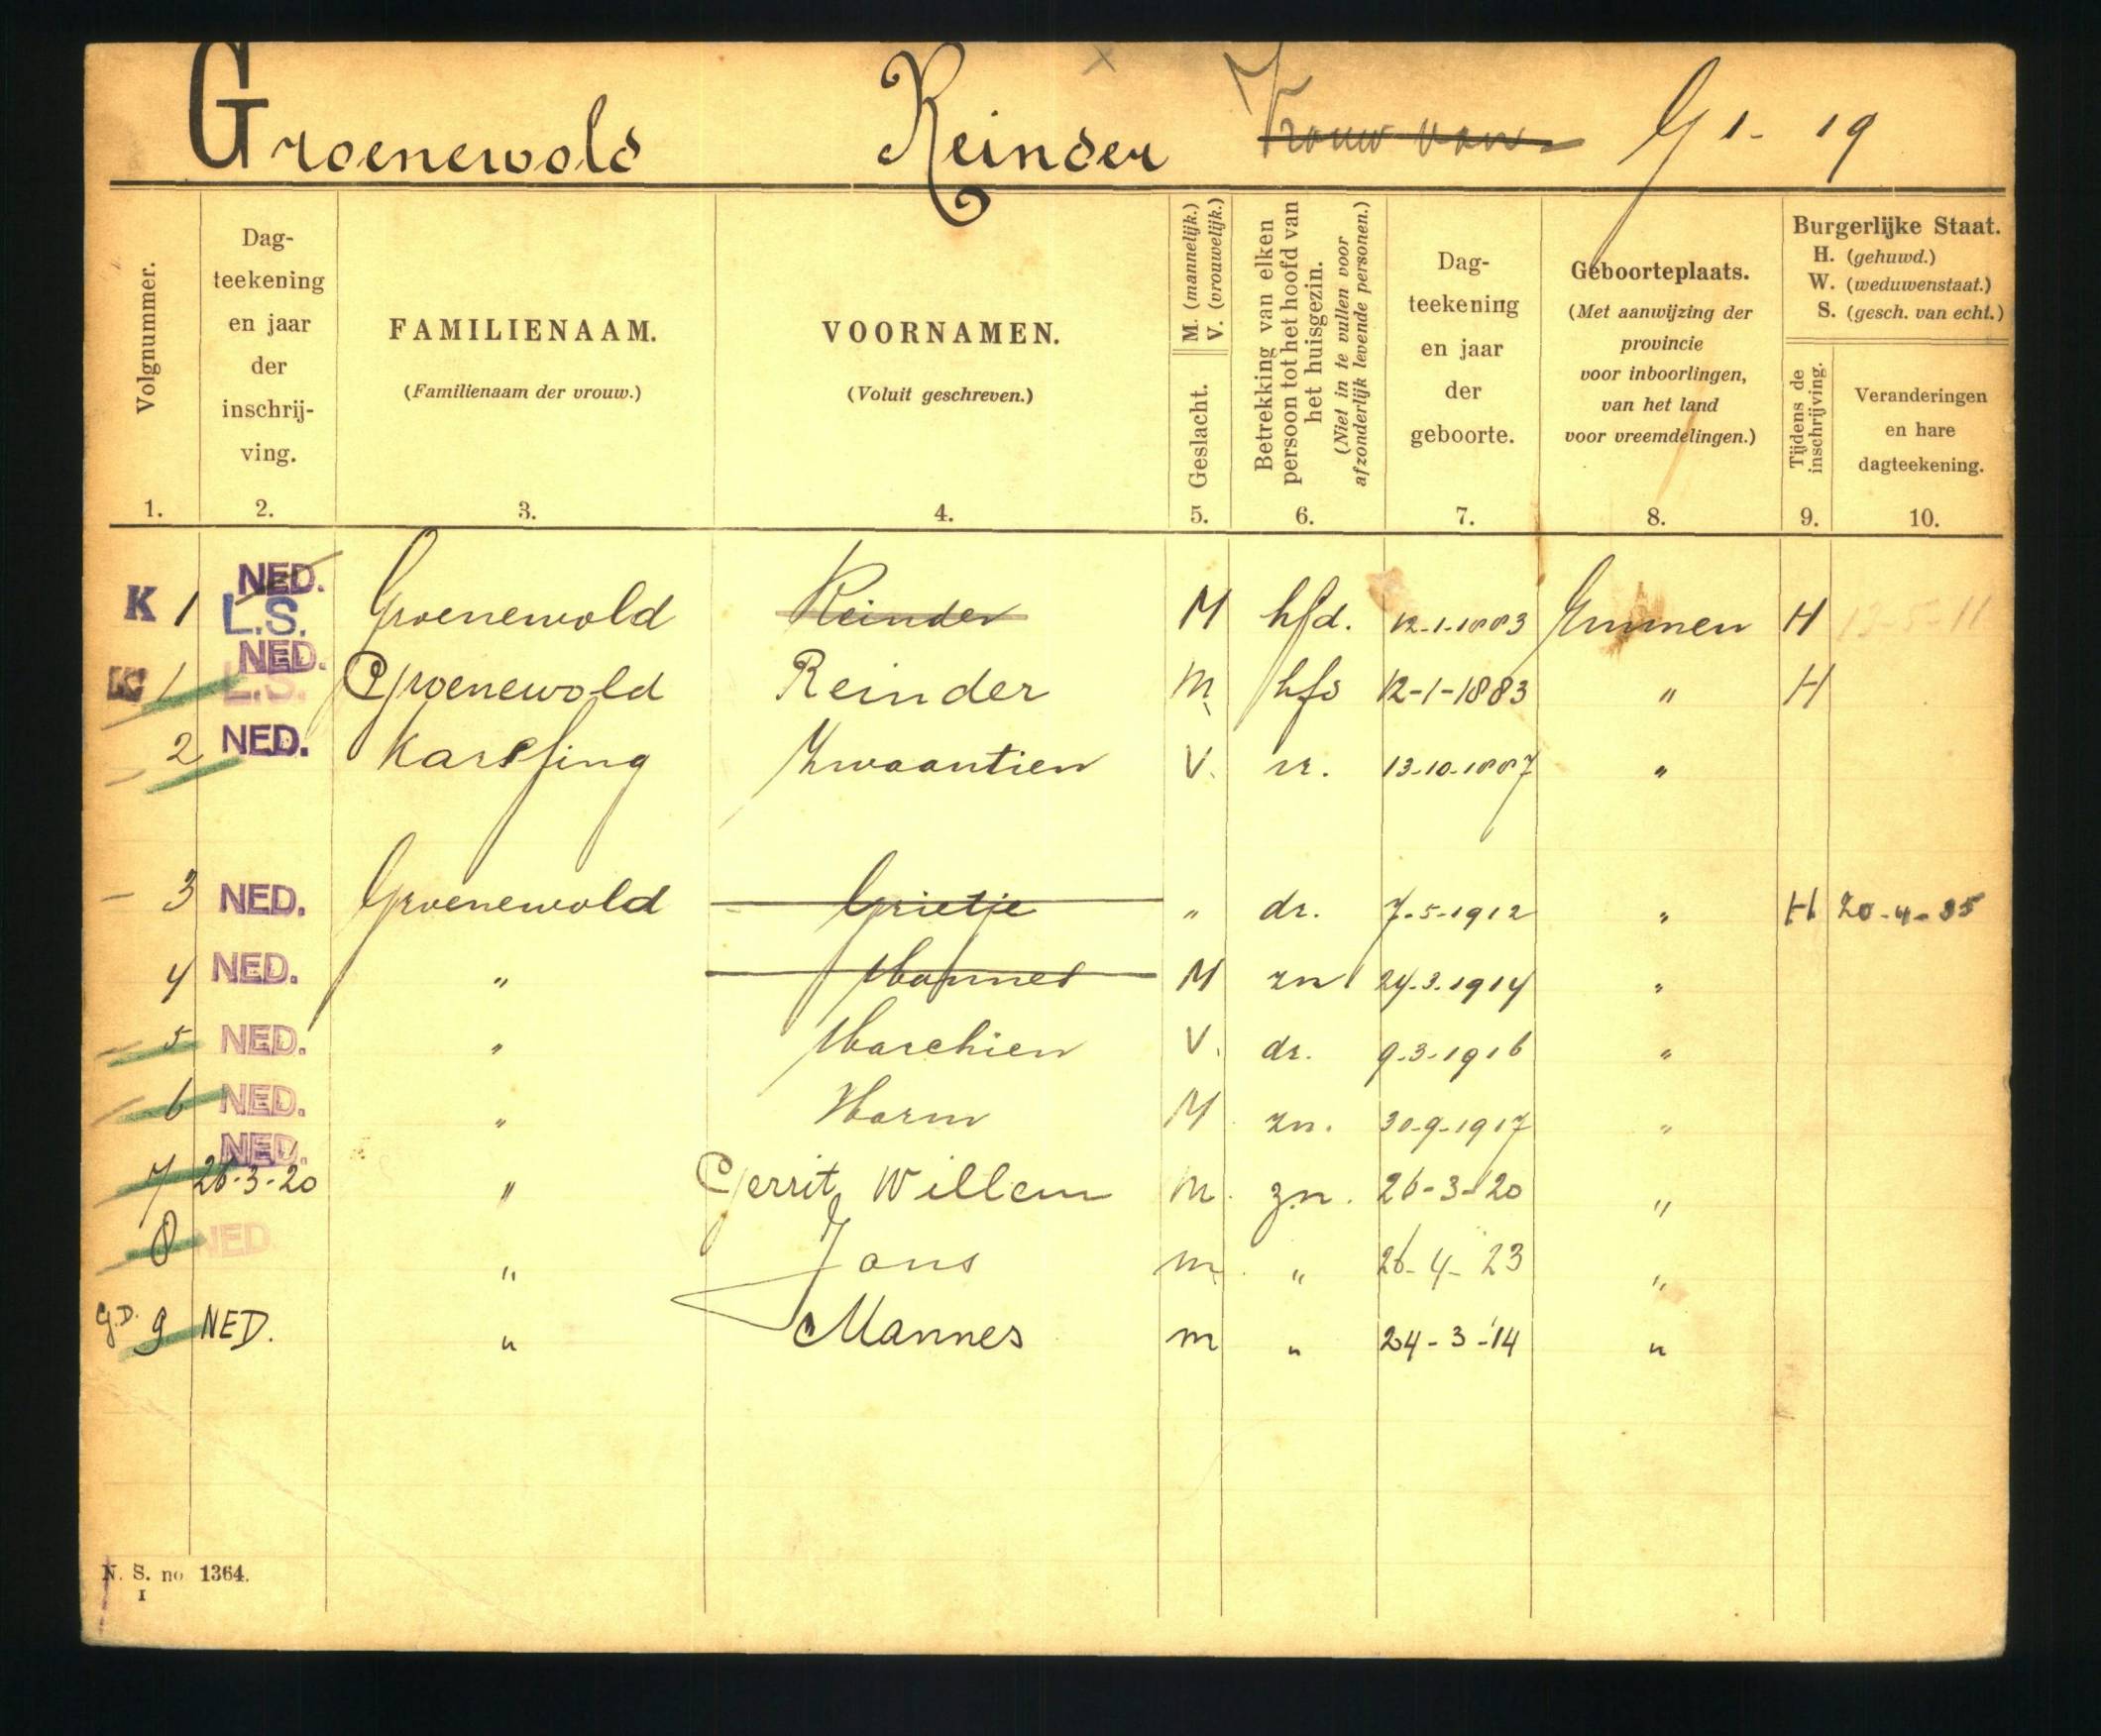 Groenewold Reinder Vrouw van G 1 - 19
Volgnummer.
Dag-
teekening
en jaar
der
inschrij-
ving.
FAMILIENAAM.
(Familienaam der vrouw.)
VOORNAMEN.
(Voluit geschreven.)
Geslacht. M. (mannelijk.)
V. (vrouwelijk.)
Betrekking van elken
persoon tot het hoofd van
het huisgezin.
(Niet in te vullen voor
afzonderlijk levende personen.)
Dag-
teekening
en jaar
der
geboorte.
Geboorteplaats.
(Met aanwijzing der
provincie
voor inboorlingen,
van het land
voor vreemdelingen.)
Burgerlijke Staat.
H. (gehuwd.)
W. (weduwenstaat.)
S. (gesch. van echt.)
Tijdens de
inschrijving.
Veranderingen
en hare
dagteekening.
1. 2. 3. 4. 5. 6. 7. 8. 9. 10.
NED.
K 1 L.S. Groenewold Reinder M hfd. 12-1-1883 Emmen H 13-5-11
NED.
K 1 L.S. Groenewold Reinder M hfd 12-1-1883 " H
2 NED. Karssing Zwaantien V. vr. 13-10-1887 "
3 NED. Groenewold Grietje " dr. 7-5-1912 " H 20-4-35
4 NED. " Mannes M zn 24-3-1914 "
5 NED. " Marchien V. dr. 9-3-1916 "
6 NED. " Harm M zn. 30-9-1917 "
NED.
7 26-3-20 " Gerrit Willem M. zn. 26-3-20 "
8 NED " Jans m. " 26-4-23 "
G.D. 9 NED. " Mannes m " 24-3-'14 "
N. S. no 1364.
I